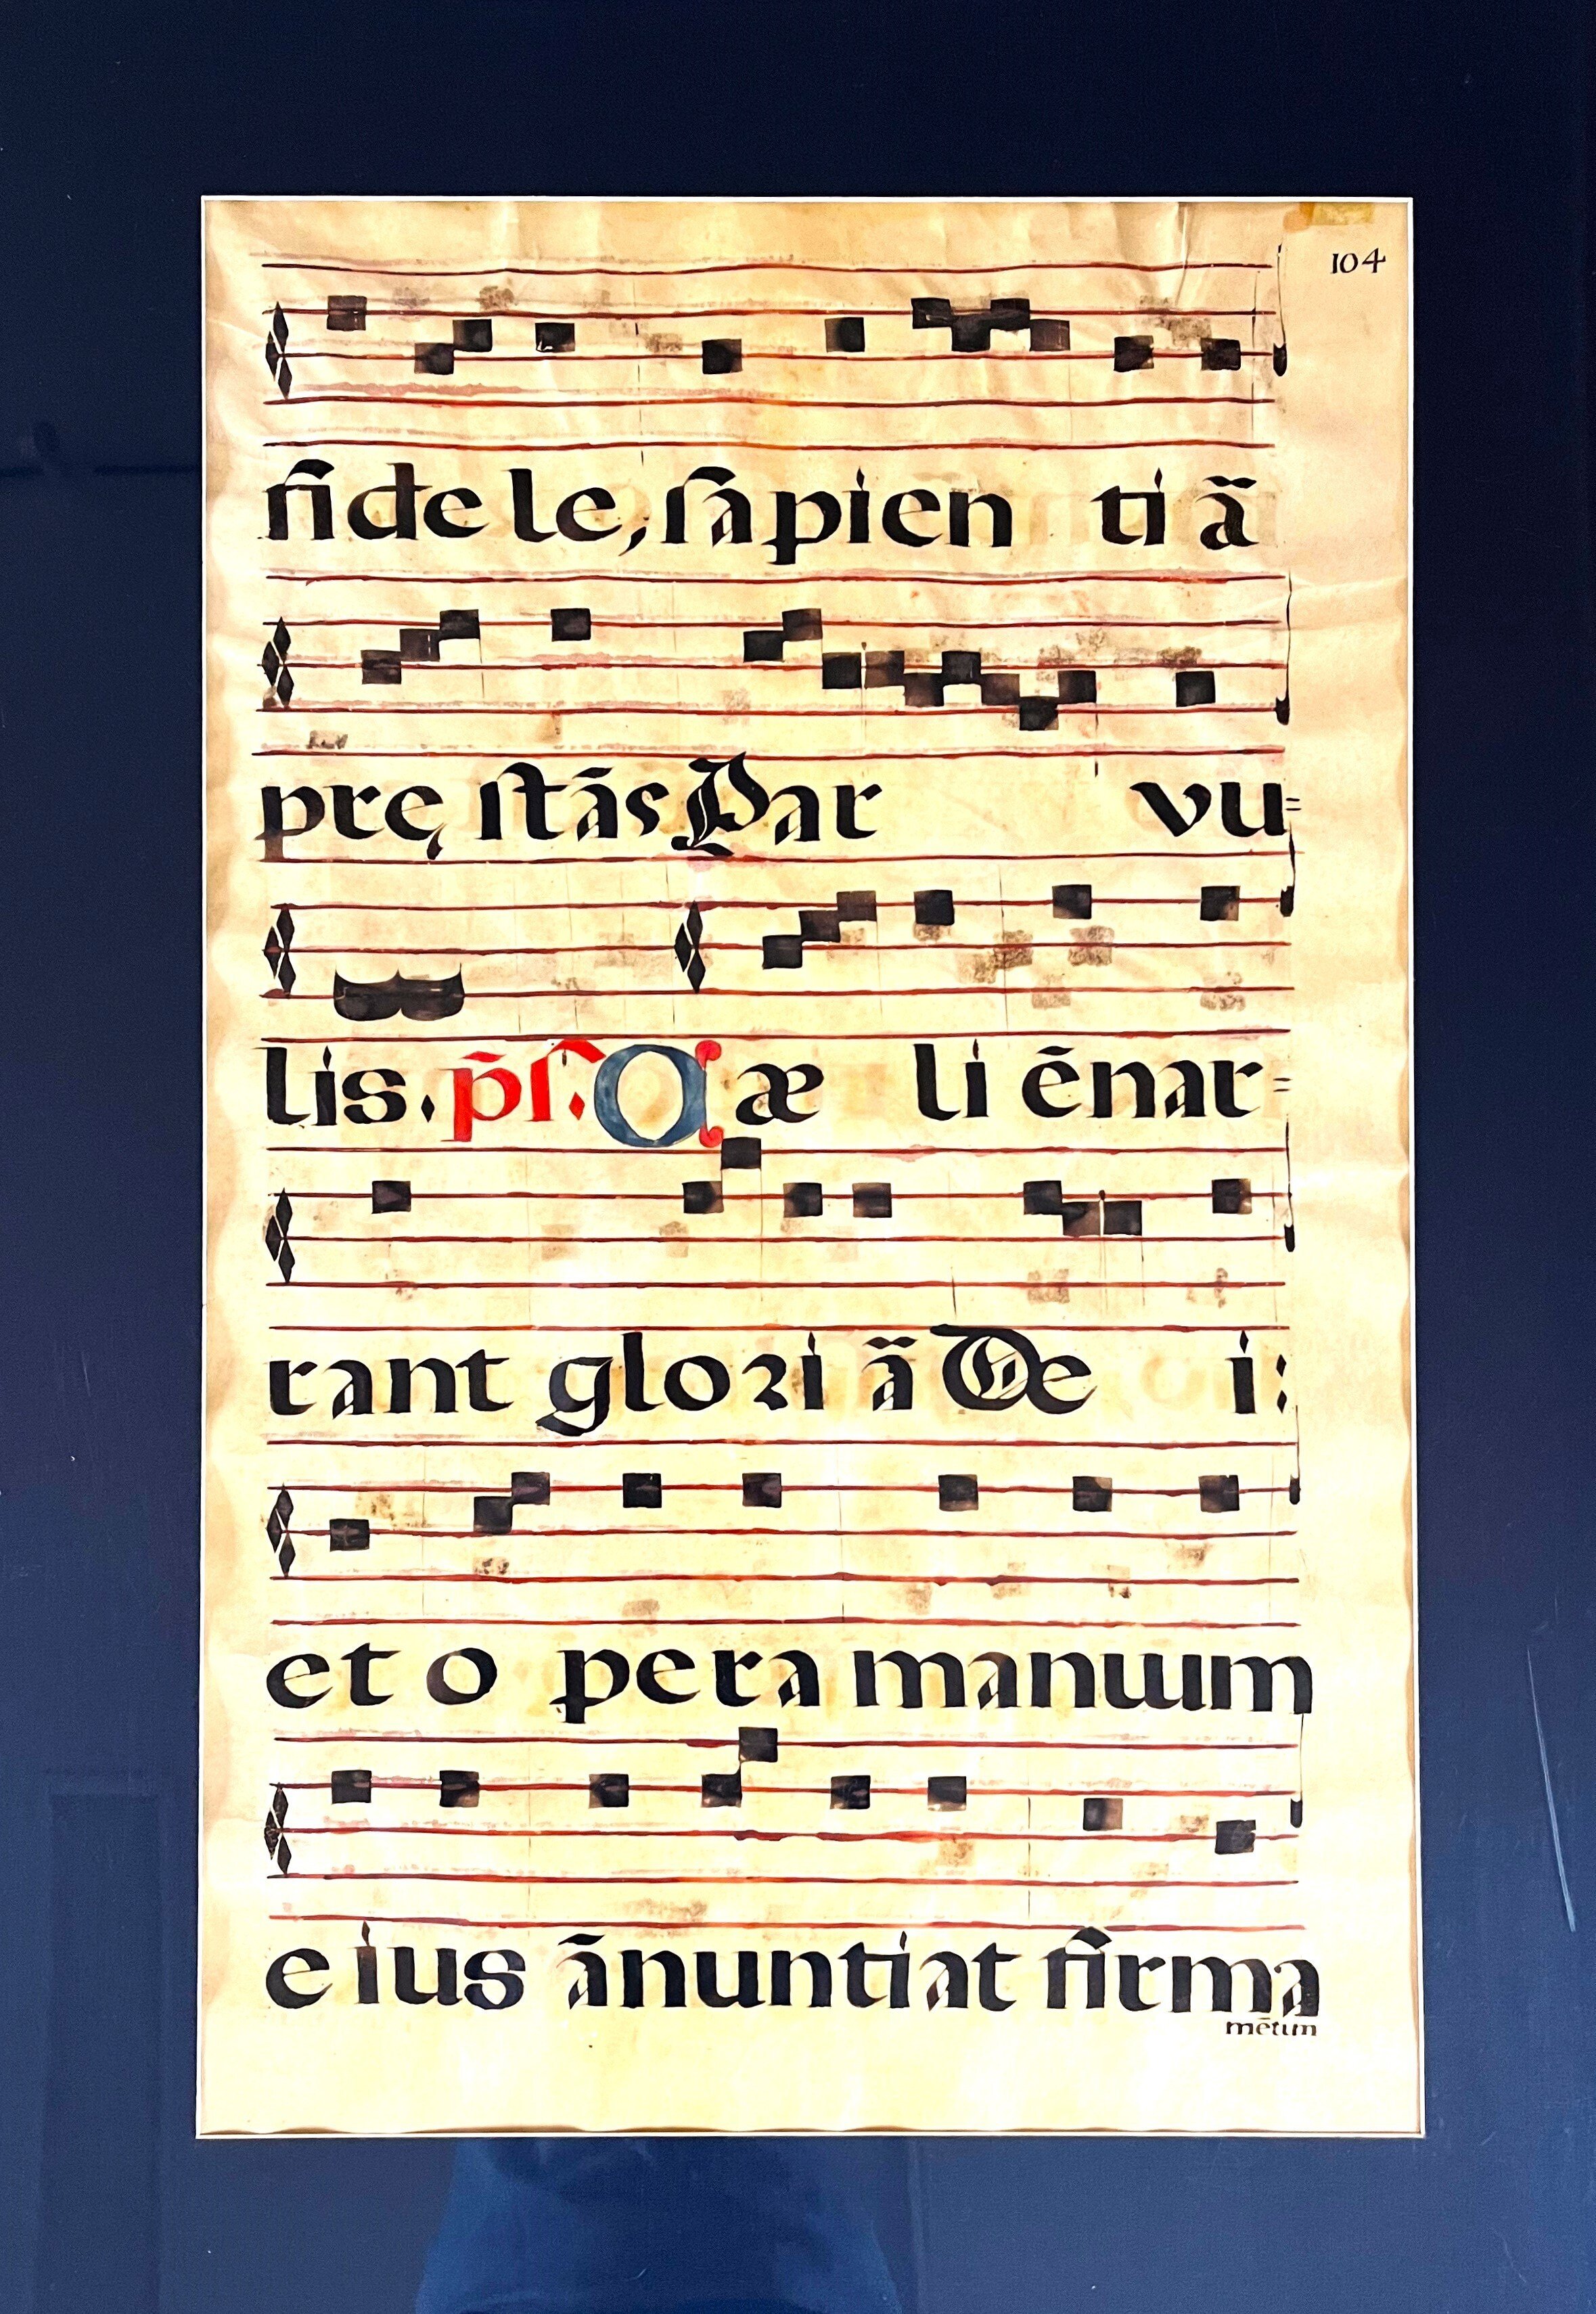 104
fide le, ſapien ti ā
pre̜ ſtās Par vu=
lis. p̄ſ. C æ li ēnar=
rant glori ā De i:
et o pera manuum
e ius ānuntiat firma
mētum